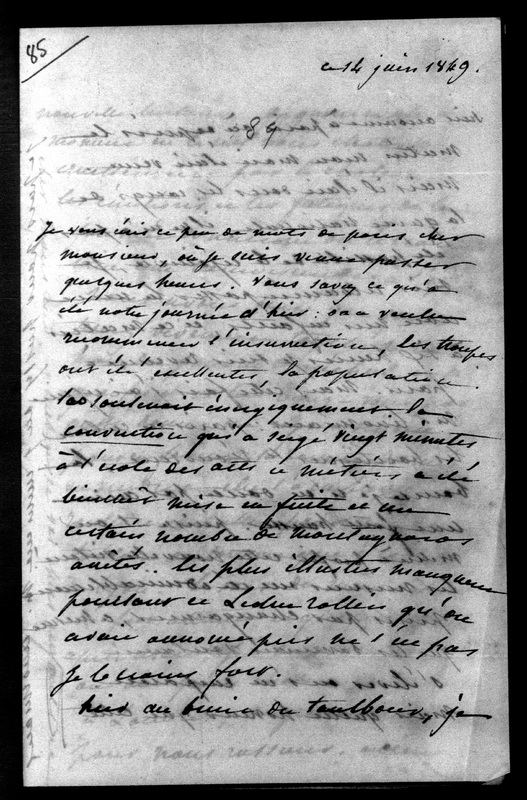 85
ce 14 juin 1849.
84
Je vous écris ce peu de mots de paris cher
monsieur, où je suis venue passer
quelques heures. vous savez ce qu'a
été notre journée d'hier: on a voulu
recommencer l'insurrection, les troupes
ont été excellentes, la population
les soutenait énergiquement. la
convention qui a siégé vingt minutes
à l'école des arts et métiers a été
bientôt mise en fuite et un
certain nombre de montagnards
arrêtés. les plus illustres manquent
pourtant et Ledru rollin qu'on
avait annoncé pris ne l'est pas
je le crains fort.
hier au bruit du tambour, je